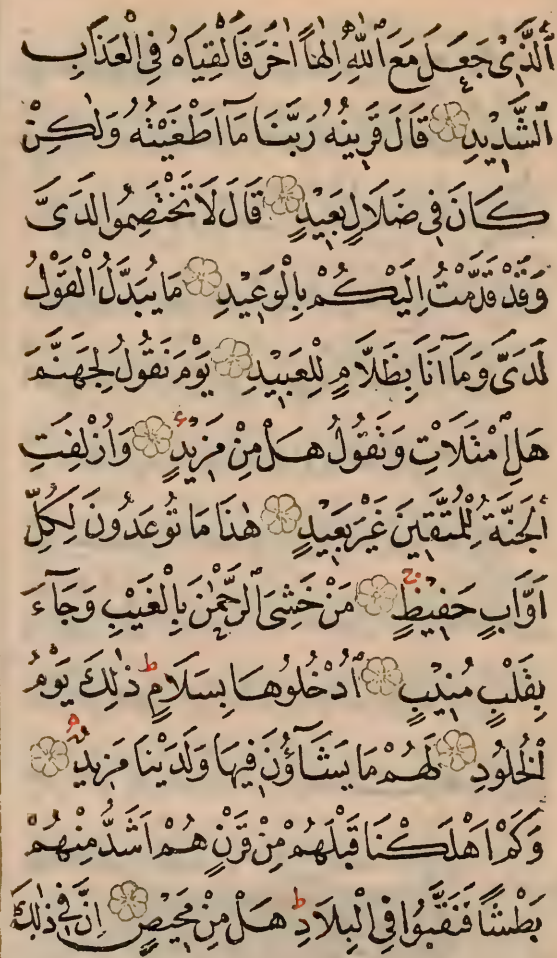 اَلَّذِيْ جَعَلَ مَعَ اللّٰهِ اِلٰهًا اٰخَرَ فَاَلْقِيَاهُ فِي الْعَذَابِ
الشَّدِيْدِ قَالَ قَرِيْنُهُ رَبَّنَا مَآ اَطْغَيْتُهُ وَلٰكِنْ
كَانَ فِيْ ضَلَالٍ بَعِيْدٍ قَالَ لَا تَخْتَصِمُوا لَدَيَّ
وَقَدْ قَدَّمْتُ اِلَيْكُمْ بِالْوَعِيْدِ مَا يُبَدَّلُ الْقَوْلُ
لَدَيَّ وَمَآ اَنَا بِظَلَّامٍ لِلْعَبِيْدِ يَوْمَ نَقُوْلُ لِجَهَنَّمَ
هَلِ امْتَلَاْتِ وَتَقُوْلُ هَلْ مِنْ مَزِيْدٍ وَاُزْلِفَتِ
الْجَنَّةُ لِلْمُتَّقِيْنَ غَيْرَ بَعِيْدٍ هٰذَا مَا تُوْعَدُوْنَ لِكُلِّ
اَوَّابٍ حَفِيْظٍ ج مَنْ خَشِيَ الرَّحْمٰنَ بِالْغَيْبِ وَجَآءَ
بِقَلْبٍ مُنِيْبٍ اُدْخُلُوْهَا بِسَلَامٍ ط ذٰلِكَ يَوْمُ
الْخُلُوْدِ لَهُمْ مَا يَشَآؤُنَ فِيْهَا وَلَدَيْنَا مَزِيْدٌ
وَكَمْ اَهْلَكْنَا قَبْلَهُمْ مِنْ قَرْنٍ هُمْ اَشَدُّ مِنْهُمْ
بَطْشًا فَنَقَّبُوا فِي الْبِلَادِ ط هَلْ مِنْ مَحِيْصٍ اِنَّ فِيْ ذٰلِكَ